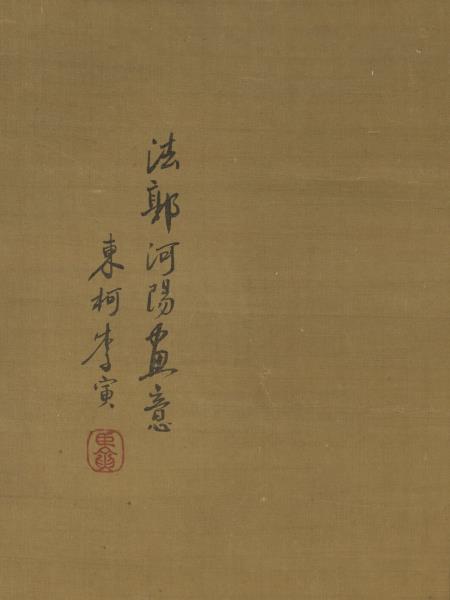 法郭河陽畫意
東柯李寅